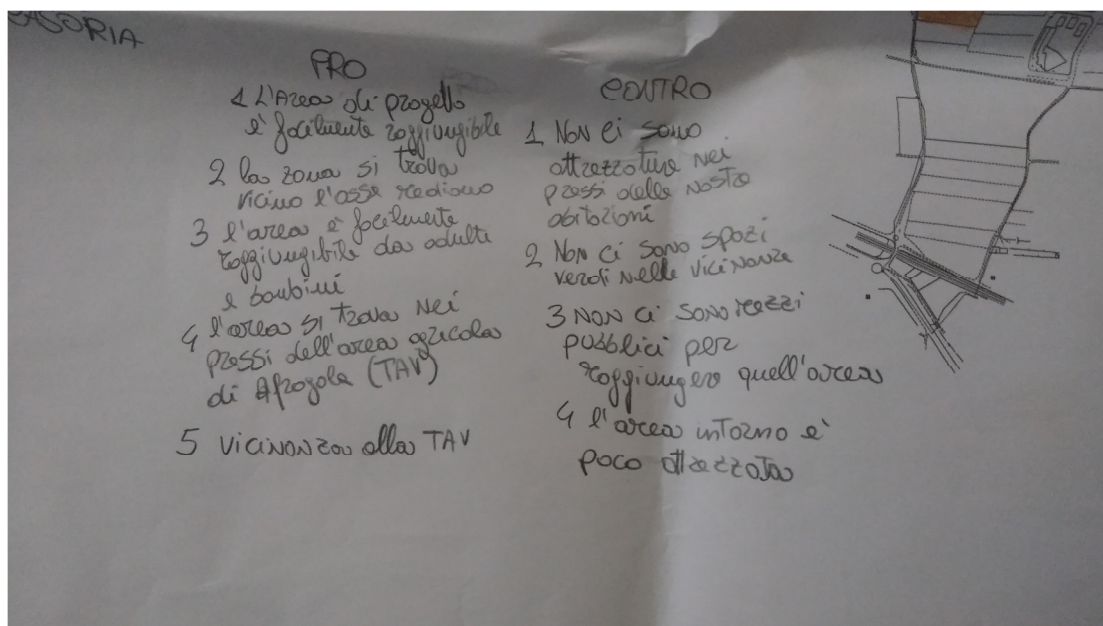 ASORIA
PRO
1 L'Area di progetto
e' facilmente raggiungibile
2 la zona si trova
vicino l'asse mediano
3 l'area e' facilmente
raggiungibile da adulti
e bambini
4 l'area si trova nei
pressi dell'area agricola
di Afragola (TAV)
5 vicinanza alla TAV
CONTRO
1 Non ci sono
attrezzature nei
pressi delle nostre
abitazioni
2 Non ci sono spazi
verdi nelle vicinanze
3 NON ci sono mezzi
pubblici per
raggiungere quell'area
4 l'area intorno e'
poco attrezzata